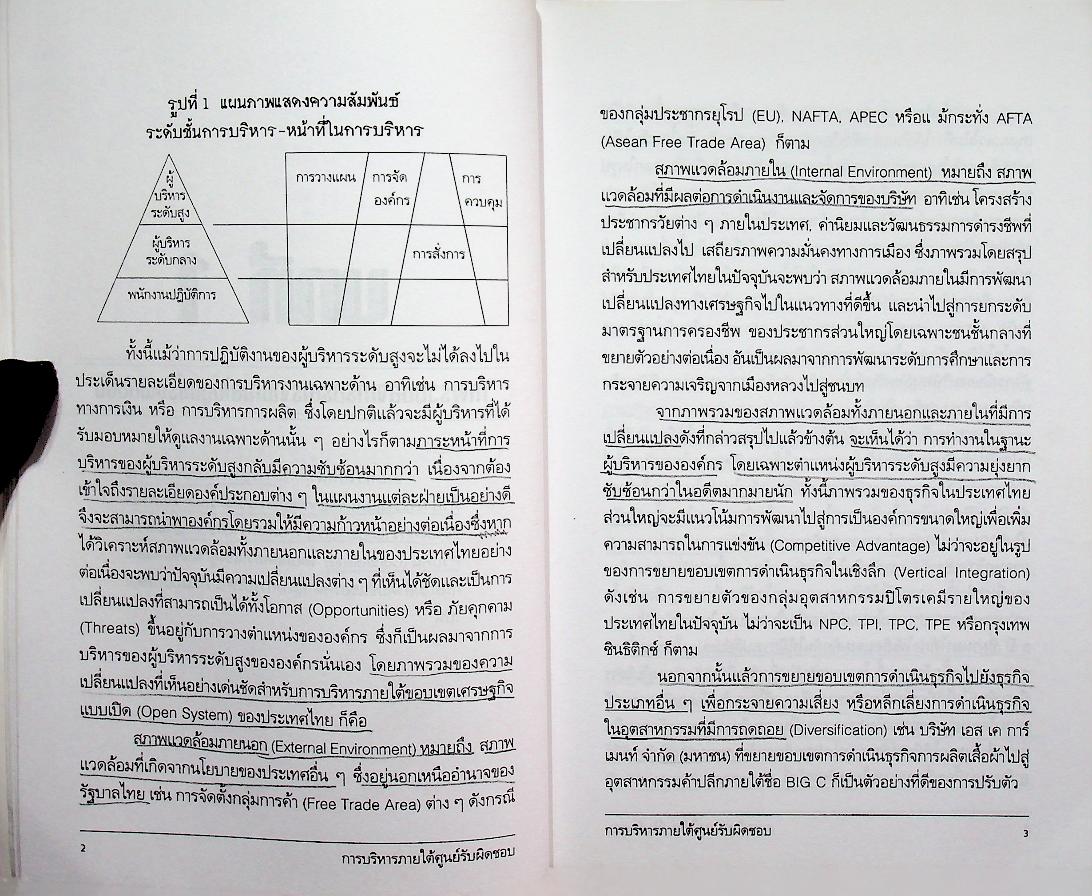 รูปที่ 1 แผนภาพแสดงความสัมพันธ์
ระดับชั้นการบริหาร-หน้าที่ในการบริหาร
ผู้
บริหาร
ระดับสูง
ผู้บริหาร
ระดับกลาง
พนักงานปฏิบัติการ
การวางแผน
การจัด
องค์กร
การสั่งการ
การ
ควบคุม
ทั้งนี้แม้ว่าการปฏิบัติงานของผู้บริหารระดับสูงจะไม่ได้ลงไปใน
ประเด็นรายละเอียดของการบริหารงานเฉพาะด้าน อาทิเช่น การบริหาร
ทางการเงิน หรือ การบริหารการผลิต ซึ่งโดยปกติแล้วจะมีผู้บริหารที่ได้
รับมอบหมายให้ดูแลงานเฉพาะด้านนั้น ๆ อย่างไรก็ตามภาระหน้าที่การ
บริหารของผู้บริหารระดับสูงกลับมีความซับซ้อนมากกว่า เนื่องจากต้อง
เข้าใจถึงรายละเอียดองค์ประกอบต่าง ๆ ในแผนงานแต่ละฝ่ายเป็นอย่างดี
จึงจะสามารถนำพาองค์กรโดยรวมให้มีความก้าวหน้าอย่างต่อเนื่องซึ่งหาก
ได้วิเคราะห์สภาพแวดล้อมทั้งภายนอกและภายในของประเทศไทยอย่าง
ต่อเนื่องจะพบว่าปัจจุบันมีความเปลี่ยนแปลงต่าง ๆ ที่เห็นได้ชัดและเป็นการ
เปลี่ยนแปลงที่สามารถเป็นได้ทั้งโอกาส (Opportunities) หรือ ภัยคุกคาม
(Threats) ขึ้นอยู่กับการวางตำแหน่งขององค์กร ซึ่งก็เป็นผลมาจากการ
บริหารของผู้บริหารระดับสูงขององค์กรนั่นเอง โดยภาพรวมของความ
เปลี่ยนแปลงที่เห็นอย่างเด่นชัดสำหรับการบริหารภายใต้ขอบเขตเศรษฐกิจ
แบบเปิด (Open System) ของประเทศไทย ก็คือ
สภาพแวดล้อมภายนอก (External Environment) หมายถึง สภาพ
แวดล้อมที่เกิดจากนโยบายของประเทศอื่น ๆ ซึ่งอยู่นอกเหนืออำนาจของ
รัฐบาลไทย เช่น การจัดตั้งกลุ่มการค้า (Free Trade Area) ต่าง ๆ ดังกรณี
2
การบริหารภายใต้ศูนย์รับผิดชอบ
ของกลุ่มประชากรยุโรป (EU), NAFTA, APEC หรือแ ม้กระทั่ง AFTA
(Asean Free Trade Area) ก็ตาม
สภาพแวดล้อมภายใน (Internal Environment) หมายถึง สภาพ
แวดล้อมที่มีผลต่อการดำเนินงานและจัดการของบริษัท อาทิเช่น โครงสร้าง
ประชากรวัยต่าง ๆ ภายในประเทศ, ค่านิยมและวัฒนธรรมการดำรงชีพที่
เปลี่ยนแปลงไป เสถียรภาพความมั่นคงทางการเมือง ซึ่งภาพรวมโดยสรุป
สำหรับประเทศไทยในปัจจุบันจะพบว่า สภาพแวดล้อมภายในมีการพัฒนา
เปลี่ยนแปลงทางเศรษฐกิจไปในแนวทางที่ดีขึ้น และนำไปสู่การยกระดับ
มาตรฐานการครองชีพ ของประชากรส่วนใหญ่โดยเฉพาะชนชั้นกลางที่
ขยายตัวอย่างต่อเนื่อง อันเป็นผลมาจากการพัฒนาระดับการศึกษาและการ
กระจายความเจริญจากเมืองหลวงไปสู่ชนบท
จากภาพรวมของสภาพแวดล้อมทั้งภายนอกและภายในที่มีการ
เปลี่ยนแปลงดังที่กล่าวสรุปไปแล้วข้างต้น จะเห็นได้ว่า การทำงานในฐานะ
ผู้บริหารขององค์กร โดยเฉพาะตำแหน่งผู้บริหารระดับสูงมีความยุ่งยาก
ซับซ้อนกว่าในอดีตมากมายนัก ทั้งนี้ภาพรวมของธุรกิจในประเทศไทย
ส่วนใหญ่จะมีแนวโน้มการพัฒนาไปสู่การเป็นองค์การขนาดใหญ่เพื่อเพิ่ม
ความสามารถในการแข่งขัน (Competitive Advantage) ไม่ว่าจะอยู่ในรูป
ของการขยายขอบเขตการดำเนินธุรกิจในเชิงลึก (Vertical Integration)
ดังเช่น การขยายตัวของกลุ่มอุตสาหกรรมปิโตรเคมีรายใหญ่ของ
ประเทศไทยในปัจจุบัน ไม่ว่าจะเป็น NPC, TPI, TPC, TPE หรือกรุงเทพ
ซินธิติกซ์ ก็ตาม
นอกจากนั้นแล้วการขยายขอบเขตการดำเนินธุรกิจไปยังธุรกิจ
ประเภทอื่น ๆ เพื่อกระจายความเสี่ยง หรือหลีกเลี่ยงการดำเนินธุรกิจ
ในอุตสาหกรรมที่มีการถดถอย (Diversification) เช่น บริษัท เอส เค การ์
เมนท์ จำกัด (มหาชน) ที่ขยายขอบเขตการดำเนินธุรกิจการผลิตเสื้อผ้าไปสู่
อุตสาหกรรมค้าปลีกภายใต้ชื่อ BIG C ก็เป็นตัวอย่างที่ดีของการปรับตัว
การบริหารภายใต้ศูนย์รับผิดชอบ
3